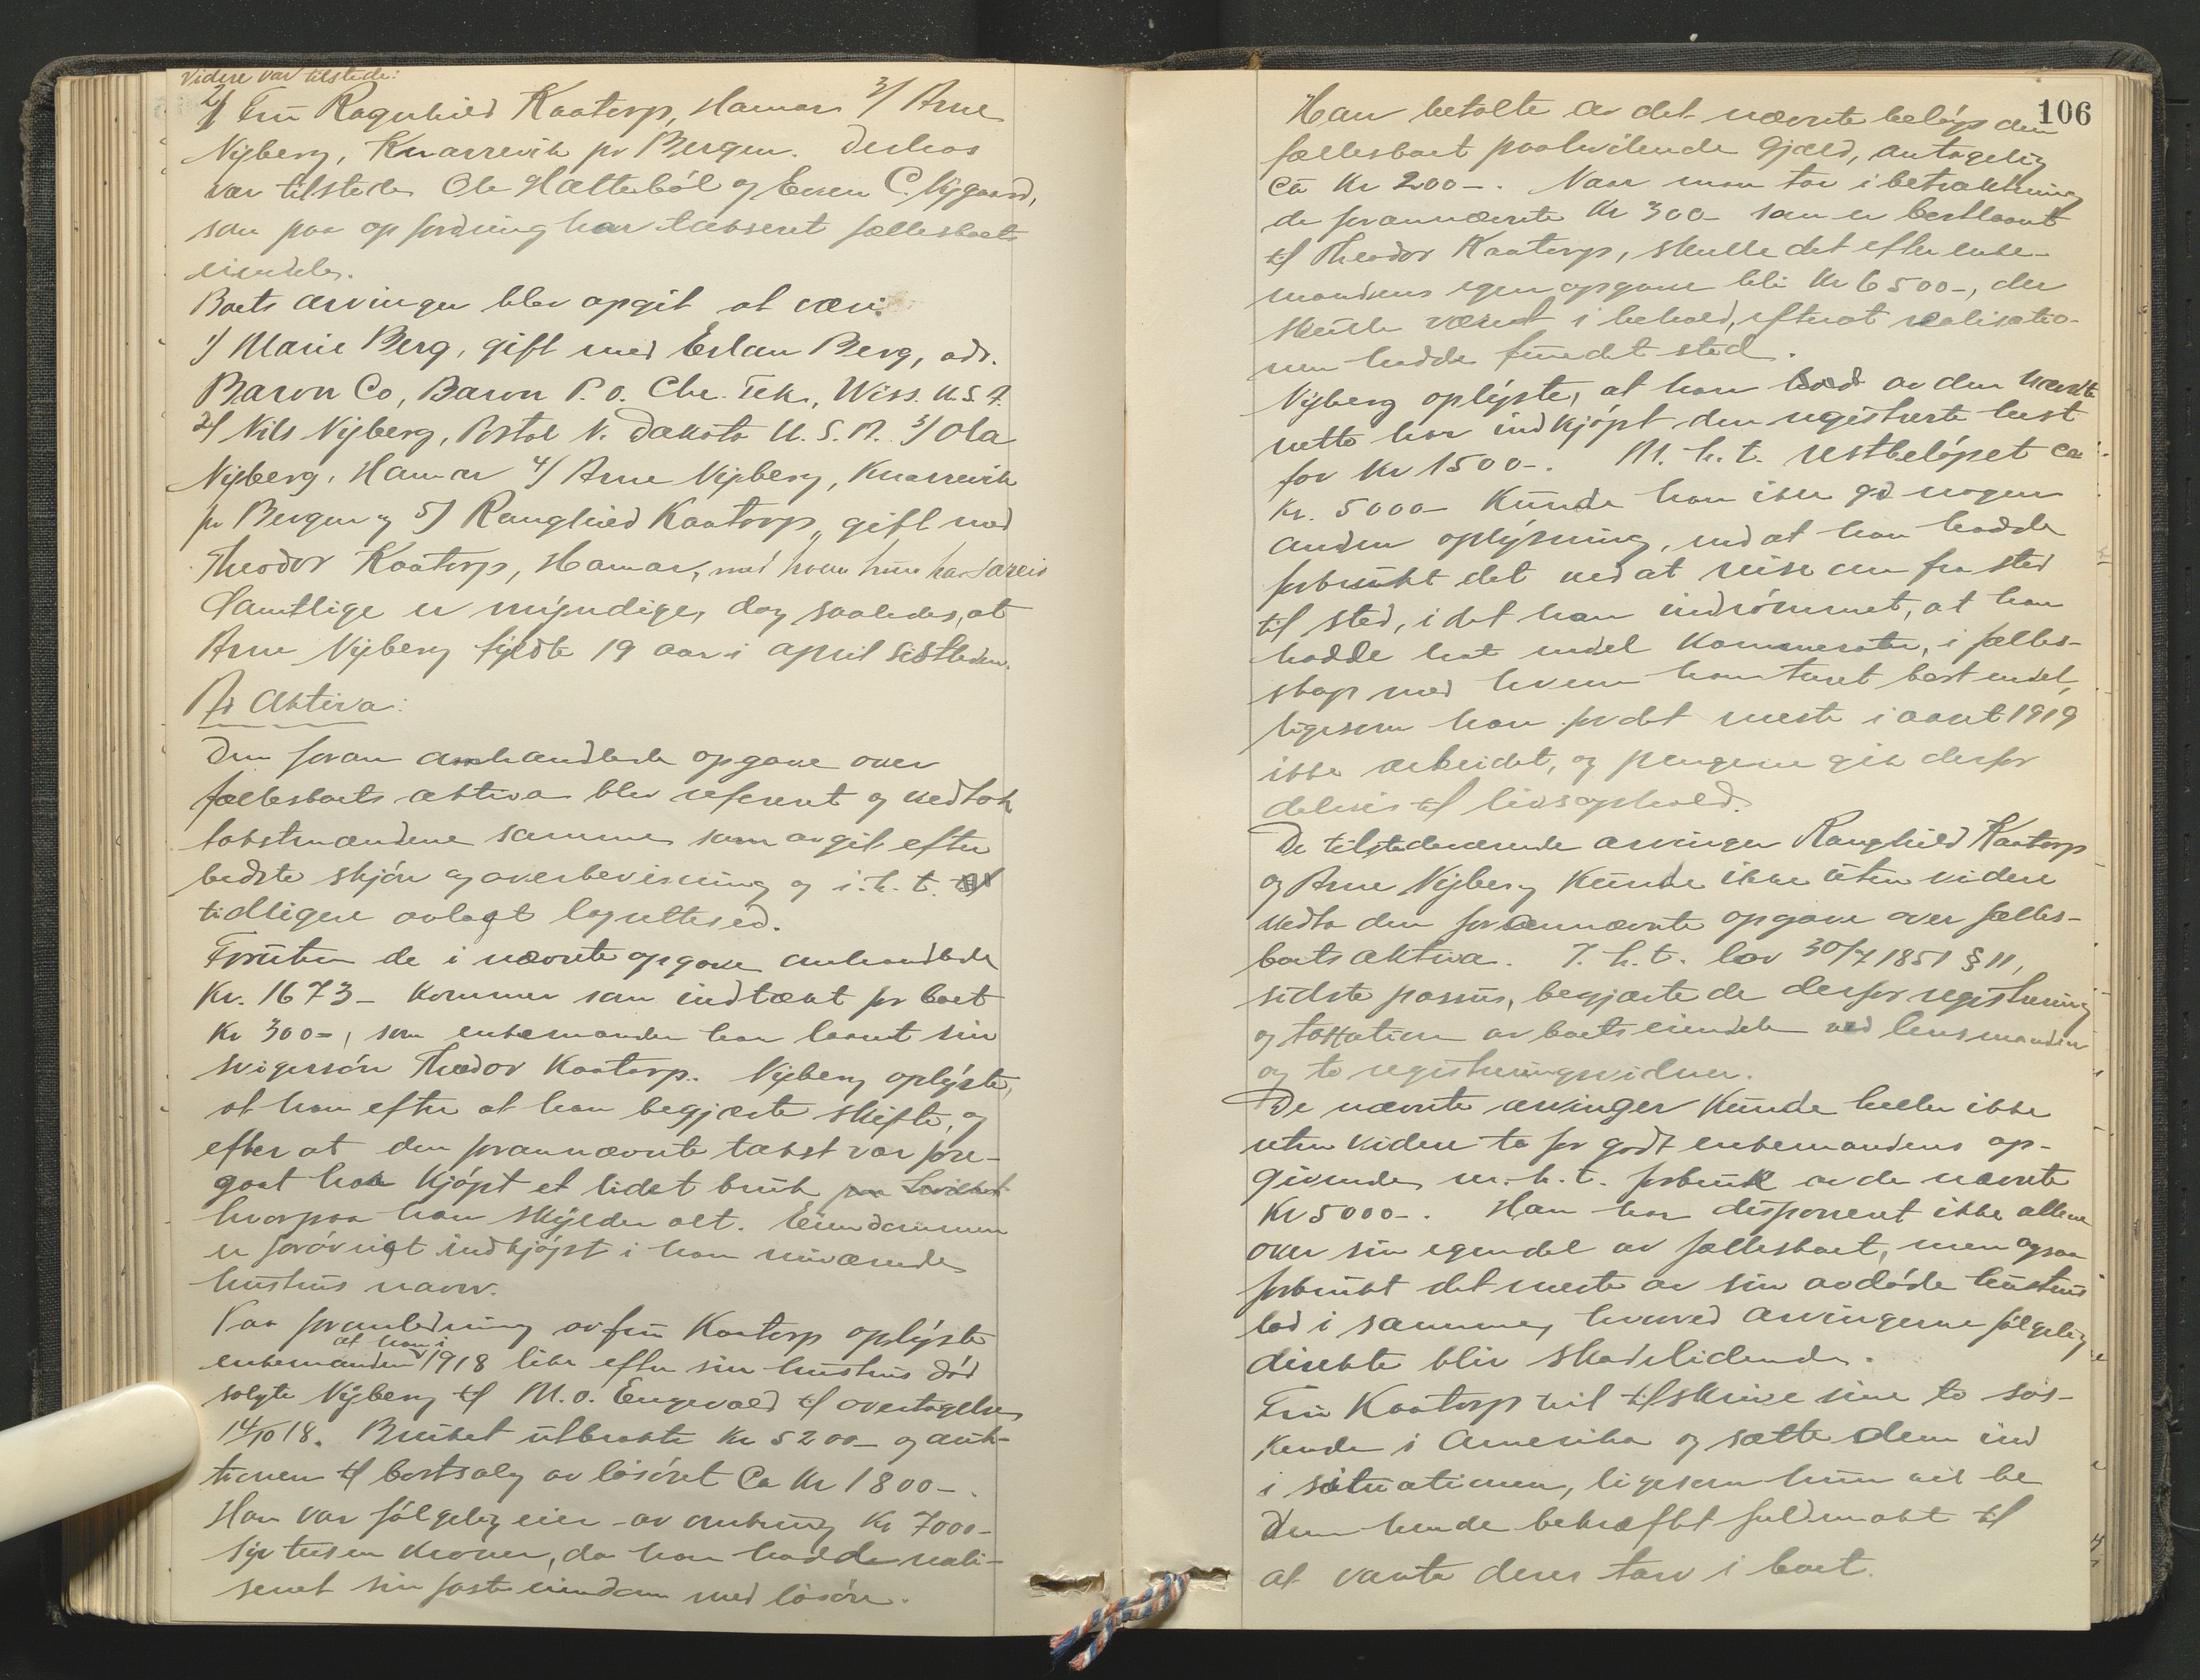 Videre var tilstede:
2/ Fru Ragnhild Kaatorp, Hamar 3/ Arne
Nyberg, Knarrevik pr Bergen. Derhos
var tilstede Ole Hætterböl og Even C. Nygaard,
som paa opfordring har taksert fællesboets
eiendele.
Boets arvinger blev opgit at være:
1/ Marie Berg, gift med Erlan Berg, adr.
Baron Co, Baron P.O. Chr. Tek, Wiss. U.S.A.
2/ Nils Nyberg, Portal N. Dakota U.S.A. 3/ Ola
Nyberg, Hamar 4/ Arne Nyberg, Knarrevik
pr Bergen og 5/ Ranghild Kaatorp, gift med
Theodor Kaatorp, Hamar, med hvem hun har særeie
Samtlige er myndige, dog saaledes, at
Arne Nyberg fyldte 19 aar i april sistleden.
Ad Aktiva:
Den foran omhandlede opgave over
fællesboets aktiva blev referert og vedtok
takstmændene samme som avgit efter
bedste skjön og overbevisning og i.h.t.
tidligere avlagt lagrettesed.
Foruten de i nævnte opgave omhandlede
Kr. 1673- kommer som indtækt for boet
Kr 300-, som enkemanden har laant sin
svigersön Theodor Kaatorp. Nyberg oplyste,
at han efter at han begjærte skifte, og
efter at den forannævnte takst var fore-
gaat har kjöpt et lidet bruk
hvorpaa han skylder alt. Eiendommen
er forövrigt indkjöpt i han nuværende
hustrus navn.
Paa foranledning av fru Kaatorp oplyste
enkemanden at han i 1918 like efter sin hustrus död
solgte Nyberg til M.O. Engevold til overtagelse
14/10 18. Bruket utbrakte Kr 5200- og auk-
tionen til bortsalg av lösöret Ca Kr 1800-.
Han var fölgelig eier av omkring Kr 7000-
syv tusen kroner, da han hadde reali-
sert sin faste eiendom med lösöre.
106
Han betalte av det nævnte belöp den
fællesboet paahvilende gjæld, antagelig
Ca Kr 200-. Naar man tar i betraktning
de forannævnte Kr 300- som er bortlaant
til Theodor Kaatorp, skulle det efter enke-
mandens egen opgave bli Kr 6500-, der
skulle været i behold, efterat realisatio-
nen hadde fundet sted.
Nyberg oplyste, at han av den nævnte
netto har indkjöpt den registrerte hest
for Kr 1500-. M.h.t. restbelöpet ca
Kr. 5000- kunde han ikke gi nogen
anden oplysning, end at han hadde
forbrukt det ved at reise om fra sted
til sted, i det han indrömmet, at han
hadde hat endel kammerater, i fælles-
skap med hvem han turet bort endel,
ligesom han for det meste i aaret 1919
ikke arbeidet, og pengene gik derfor
delvis til livsophold.
De tilstedeværende arvinger Ranghild Kaatorp
og Arne Nyberg kunde ikke uten videre
vedta den forannævnte opgave over fælles-
boets aktiva. I.h.t. lov 30/7 1851 § 11,
sidste passus, begjærte de derfor registrering
og taksation av boets eiendele ved lensmanden
og to registreringsvidner.
De nævnte arvinger kunde heller ikke
uten videre ta for godt enkemandens op-
givende m.h.t. forbruk av de nævnte
Kr 5000-. Han har disponert ikke allene
over sin egen del av fællesboet, men ogsaa
forbrukt det meste av sin avdöde hustrus
lod i samme, hvorved arvingerne fölgelig
direkte blir skadelidende.
Fru Kaatorp vil tilskrive sine to sös-
kende i Amerika og sætte dem ind
i situationen, ligesom hun vil be
dem sende bekræftet fuldmakt til
at vareta deres tarv i boet.